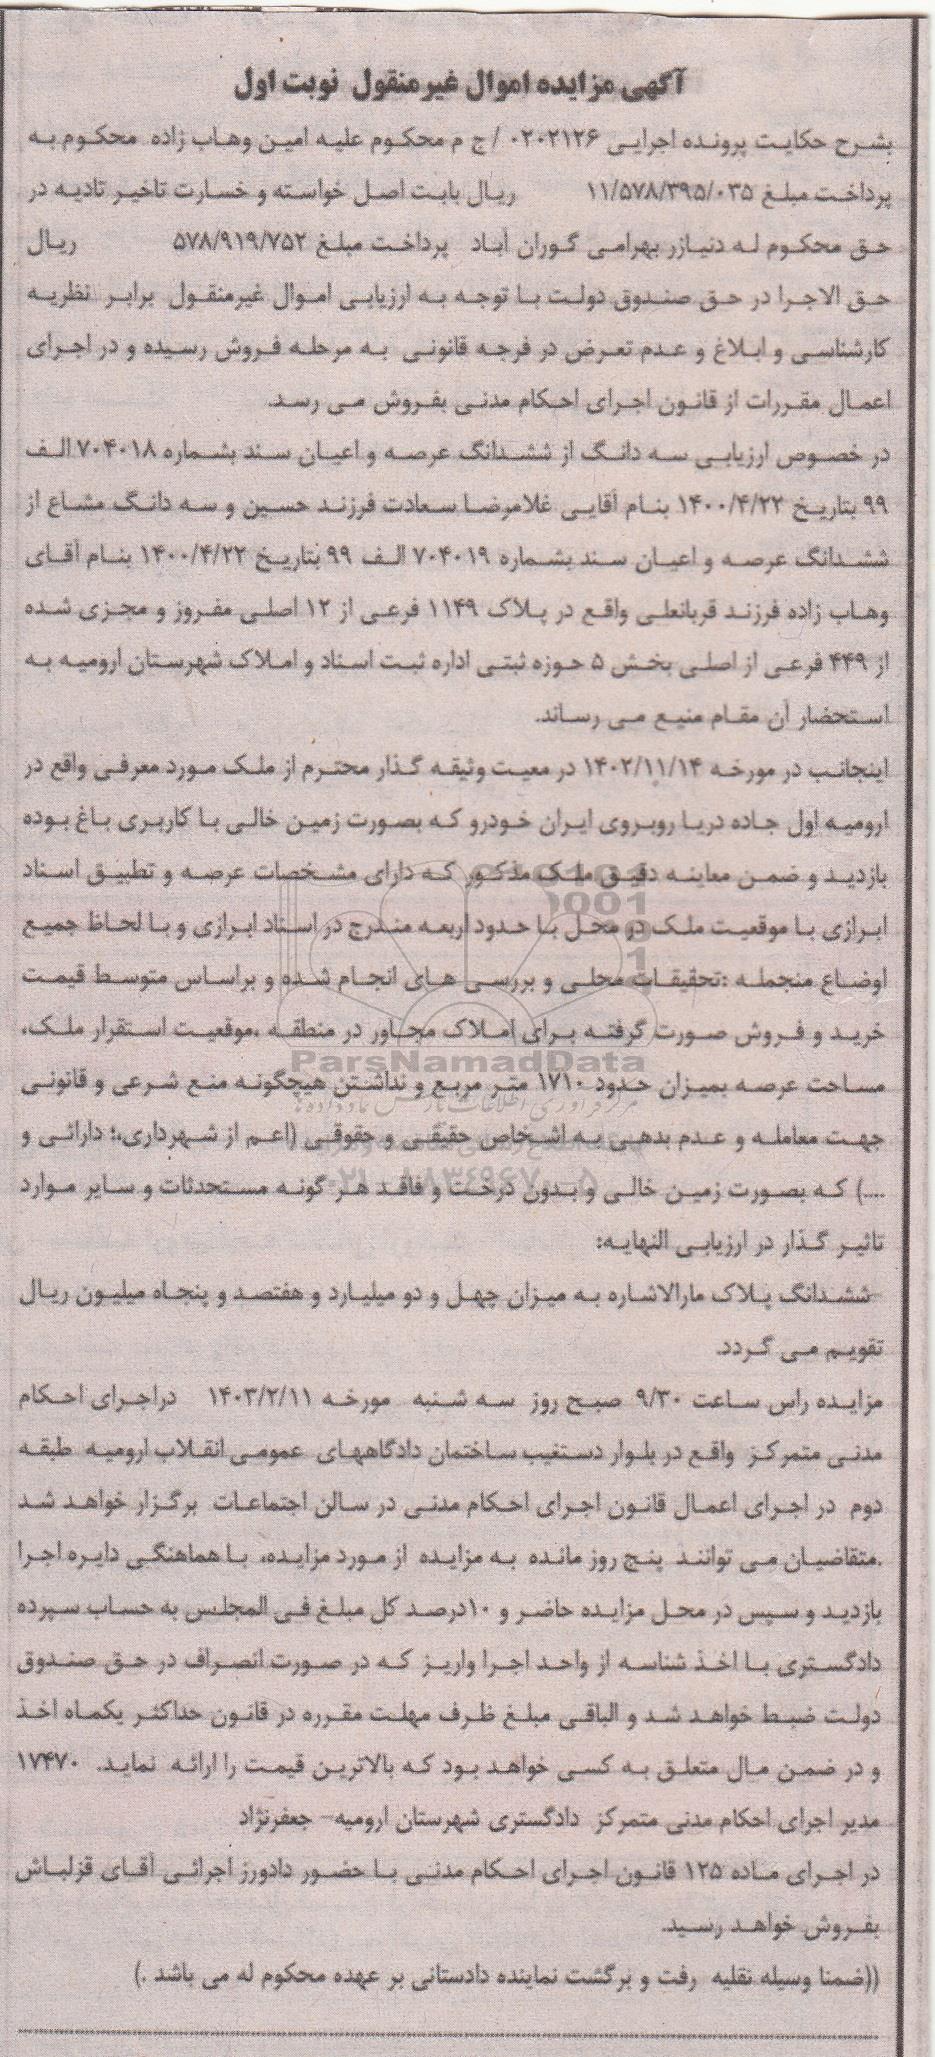 آگهی مزایده اموال غیرمنقول نوبت اول
بشرح حکایت پرونده اجرایی ۰۲۰۲۱۲۶ / ج م محکوم علیه امین وهاب زاده محکوم به
پرداخت مبلغ ۱۱/۵۷۸/۳۹۵/۰۳۵ ریال بابت اصل خواسته و خسارت تاخیر تادیه در
حق محکوم له دنیازر بهرامی گوران آباد پرداخت مبلغ ۵۷۸/۹۱۹/۷۵۲ ریال
حق الاجرا در حق صندوق دولت با توجه به ارزیابی اموال غیرمنقول برابر نظریه
کارشناسی و ابلاغ و عدم تعرض در فرجه قانونی به مرحله فروش رسیده و در اجرای
اعمال مقررات از قانون اجرای احکام مدنی بفروش می رسد.
در خصوص ارزیابی سه دانگ از ششدانگ عرصه و اعیان سند بشماره ۷۰۴۰۱۸ الف
۹۹ بتاریخ ۱۴۰۰/۴/۲۲ بنام آقایی غلامرضا سعادت فرزند حسین و سه دانگ مشاع از
ششدانگ عرصه و اعیان سند بشماره ۷۰۴۰۱۹ الف ۹۹ بتاریخ ۱۴۰۰/۴/۲۲ بنام آقای
وهاب زاده فرزند قربانعلی واقع در پلاک ۱۱۴۹ فرعی از ۱۲ اصلی مفروز و مجزی شده
از ۴۴۹ فرعی از اصلی بخش ۵ حوزه ثبتی اداره ثبت اسناد و املاک شهرستان ارومیه به
استحضار آن مقام منیع می رساند.
اینجانب در مورخه ۱۴۰۲/۱۱/۱۴ در معیت وثیقه گذار محترم از ملک مورد معرفی واقع در
ارومیه اول جاده دریا روبروی ایران خودرو که بصورت زمین خالی با کاربری باغ بوده
بازدید و ضمن معاینه دقیق ملک مذکور که دارای مشخصات عرصه و تطبیق اسناد
ابرازی با موقعیت ملک در محل با حدود اربعه مندرج در اسناد ابرازی و با لحاظ جمیع
اوضاع منجمله :تحقیقات محلی و بررسی های انجام شده و براساس متوسط قیمت
خرید و فروش صورت گرفته برای املاک مجاور در منطقه ،موقعیت استقرار ملک،
ParsNamadData
مساحت عرصه بمیزان حدود ۱۷۱۰ متر مربع و نداشتن هیچگونه منع شرعی و قانونی
جهت معامله و عدم بدهی به اشخاص حقیقی و حقوقی (اعم از شهرداری،؛ دارائی و
....) که بصورت زمین خالی و بدون درخت و فاقد هر گونه مستحدثات و سایر موارد
تاثیر گذار در ارزیابی النهایه:
-ششدانگ پلاک مارالاشاره به میزان چهل و دو میلیارد و هفتصد و پنجاه میلیون ریال
تقویم می گردد.
مزایده راس ساعت ۹/۳۰ صبح روز سه شنبه مورخه ۱۴۰۳/۲/۱۱ دراجرای احکام
مدنی متمرکز واقع در بلوار دستغیب ساختمان دادگاههای عمومی انقلاب ارومیه طبقه
دوم در اجرای اعمال قانون اجرای احکام مدنی در سالن اجتماعات برگزار خواهد شد
.متقاضیان می توانند پنج روز مانده به مزایده از مورد مزایده، با هماهنگی دایره اجرا
بازدید و سپس در محل مزایده حاضر و ۱۰درصد کل مبلغ فی المجلس به حساب سپرده
دادگستری با اخذ شناسه از واحد اجرا واریز که در صورت انصراف در حق صندوق
دولت ضبط خواهد شد و الباقی مبلغ ظرف مهلت مقرره در قانون حداکثر یکماه اخذ
و در ضمن مال متعلق به کسی خواهد بود که بالاترین قیمت را ارائه نماید. ۱۷۴۷۰
مدیر اجرای احکام مدنی متمرکز دادگستری شهرستان ارومیه- جعفرنژاد
در اجرای ماده ۱۲۵ قانون اجرای احکام مدنی با حضور دادورز اجرائی آقای قزلباش
بفروش خواهد رسید.
((ضمنا وسیله نقلیه رفت و برگشت نماینده دادستانی بر عهده محکوم له می باشد .)